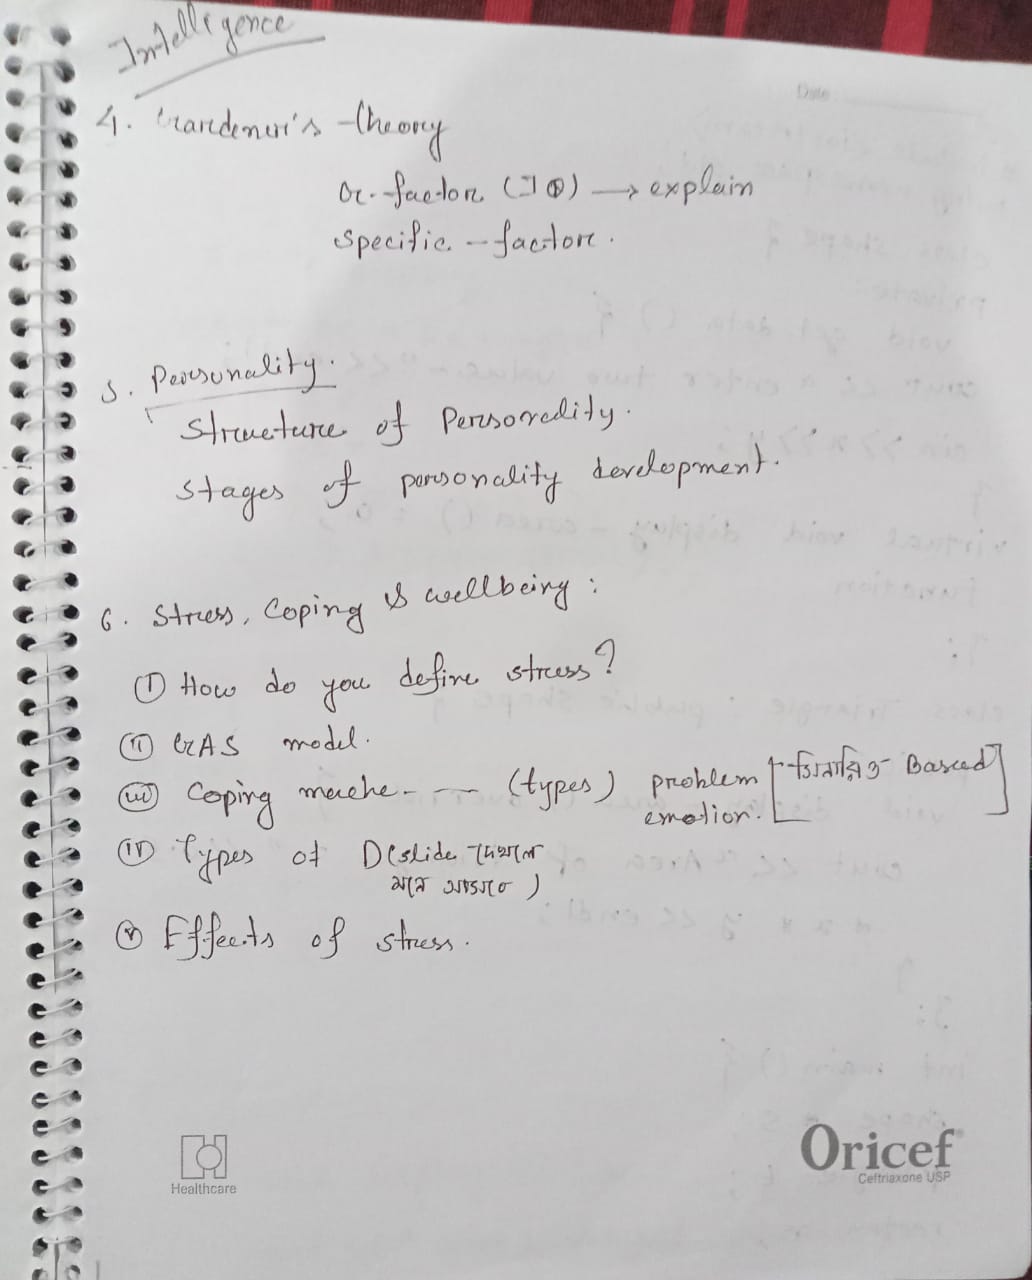 Intelligence
Date
4. Gardener's theory
G-factor (IQ) → explain
specific - factor.
5. Personality.
Structure of Personality.
stages of personality development.
6. Stress, Coping & wellbeing:
(i) How do you define stress?
(ii) GAS model.
(iii) Coping meche- — (types) problem Based
emotion.
(iv) Types of D(slide দেখলে
মনে
(v) Effects of stress.
Healthcare
Oricef
Ceftriaxone USP